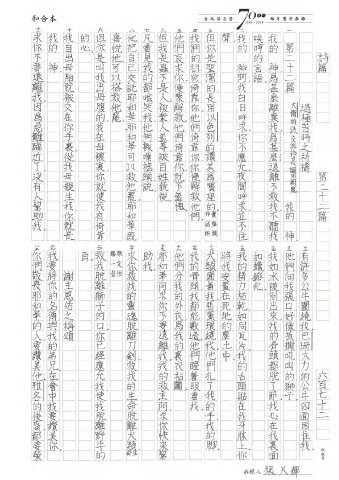 和合本
詩篇 第二十二篇 六百七十二
遇極苦時之祈禱
第二十二篇 我的 神
我的 神為甚麼離棄我為甚麼遠離不救我不聽我
唉哼的言語
我的 神阿我白日呼求你不應允夜間呼求並不住
聲
但你是聖潔的是用以色列的讚美為寶座的
我們的祖宗倚靠你他們倚靠你你便解救他們
他們哀求你便蒙解救他們倚靠你就不羞愧
但我是蟲不是人被眾人羞辱被百姓藐視
凡看見我的都嗤笑我他們撇嘴搖頭說
他把自己交託耶和華耶和華可以救他罷耶和華既
喜悅他可以搭救他罷
但你是叫我出母腹的我在母懷裏你就使我有倚靠
的心
我自出母胎就被交在你手裏從我母親生我你就是
我的 神
求你不要遠離我因為急難臨近了沒有人幫助我
有許多公牛圍繞我巴珊大力的公牛四面困住我
他們向我張口好像抓撕吼叫的獅子
我如水被倒出來我的骨頭都脫了節我心在我裏面
如蠟鎔化
我的精力枯乾如同瓦片我的舌頭貼在我牙床上你
將我安置在死地的塵土中
犬類圍著我惡黨環繞我他們扎了我的手我的腳
我的骨頭我都能數過他們瞪著眼看我
他們分我的外衣為我的裏衣拈鬮
耶和華阿求你不要遠離我我的救主阿求你快來幫
助我
求你救我的靈魂脫離刀劍救我的生命脫離犬類
救我脫離獅子的口你已經應允我使我脫離野牛的
角
謝主恩詩之揚頌
我要將你的名傳與我的弟兄在會中我要讚美你
你們敬畏耶和華的人要讚美他雅各的後裔都要榮